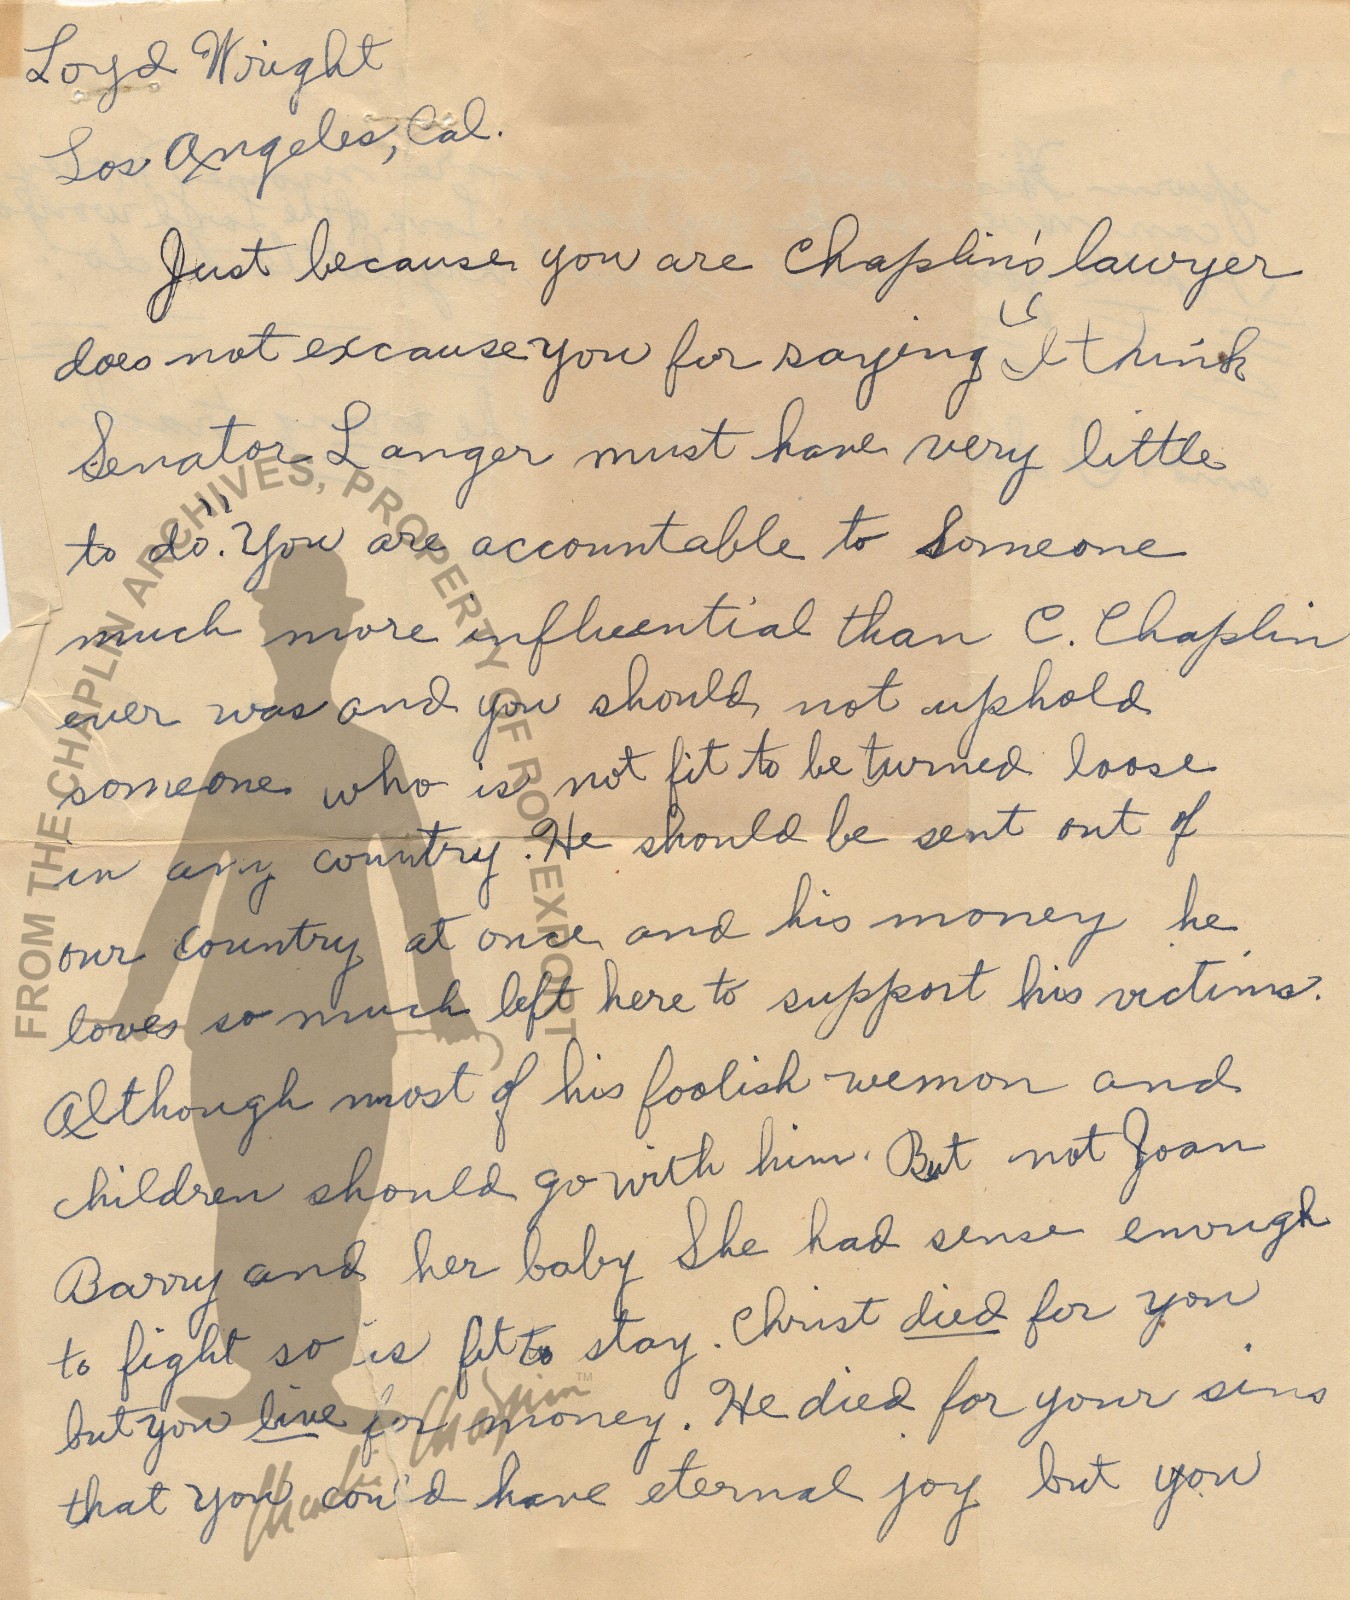 Loyd Wright
Los Angeles, Cal.
Just because you are Chaplin's lawyer
does not excause you for saying "I think
Senator Langer must have very little
to do". You are accountable to Someone
much more influential than C. Chaplin
ever was and you should not uphold
someone who is not fit to be turned loose
in any country. He should be sent out of
our country at once and his money he
loves so much left here to support his victims.
Although most of his foolish wemon and
children should go with him. But not Joan
Barry and her baby She had sense enough
to fight so is fit to stay. Christ died for you
but you live for money. He died for your sins
that you cou'd have eternal joy but you
FROM THE CHAPLIN ARCHIVES, PROPERTY OF ROY EXPORT
Charlie Chaplin™